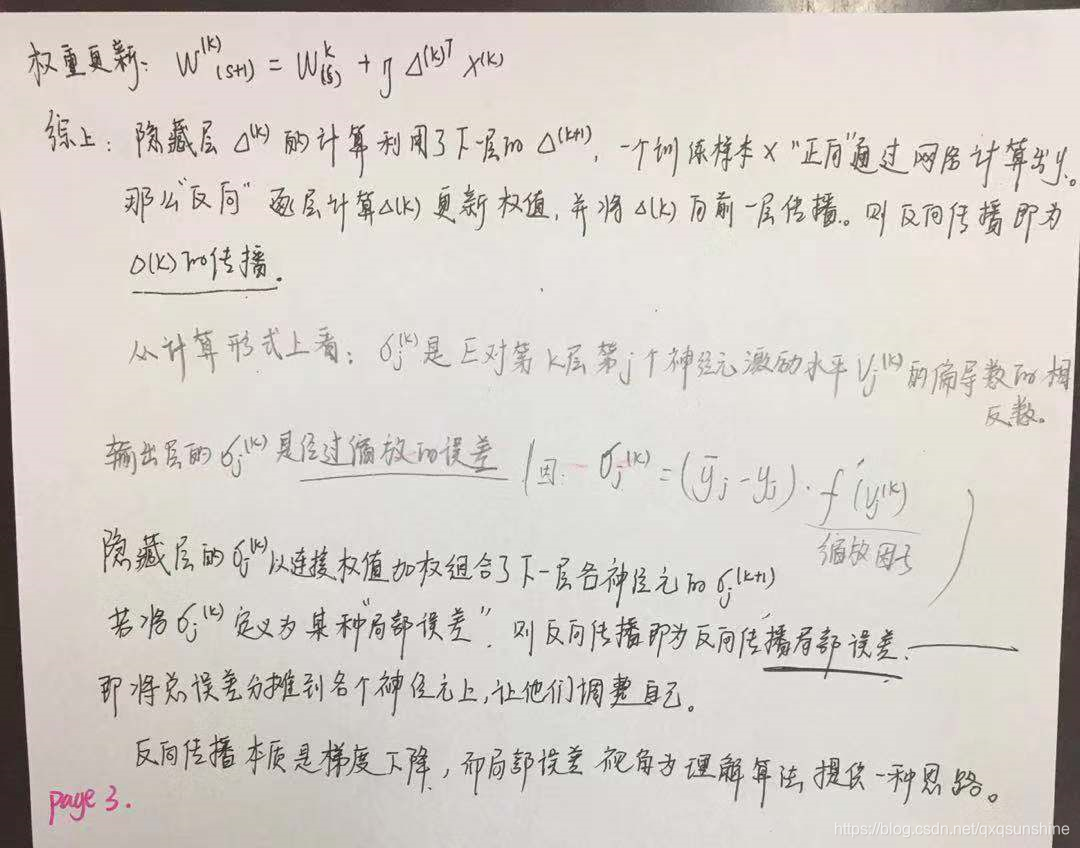 权重更新: W^{(k)}_{(s+1)} = W^{k}_{(s)} + η Δ^{(k)T} X^{(k)}
综上: 隐藏层 Δ^{(k)} 的计算利用了下一层的 Δ^{(k+1)}, 一个训练样本 x "正向"通过网络计算出y。
那么"反向"逐层计算Δ(k) 更新权值, 并将 Δ(k) 向前一层传播。则反向传播即为
Δ(k) 的传播.
从计算形式上看: σ_j^{(k)} 是 E对第 k层 第 j 个神经元激励水平 V_j^{(k)} 的偏导数的相
反数。
输出层的 σ_j^{(k)} 是经过缩放的误差 (因: σ_j^{(k)} = (ȳ_j - y_j) · f'(v_j^{(k)})
缩放因子 )
隐藏层的 σ_j^{(k)} 以连接权值加权组合了下一层各神经元的 σ_j^{(k+1)}
若将 σ_j^{(k)} 定义为某种"局部误差". 则反向传播即为反向传播局部误差.
即将总误差分摊到各个神经元上,让他们调整自己。
反向传播本质是梯度下降, 而局部误差视角为理解算法提供一种思路。
page 3.
https://blog.csdn.net/qxqsunshine